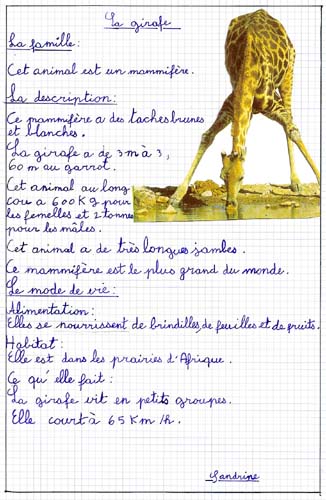 La girafe
La famille :
Cet animal est un mammifère.
La description :
Ce mammifère a des taches brunes
et blanches.
La girafe a de 3 m à 3,
60 m au garrot.
Cet animal au long
cou a 600 Kg pour
les femelles et 2 tonnes
pour les mâles.
Cet animal a de très longues jambes.
Ce mammifère est le plus grand du monde.
Le mode de vie :
Alimentation :
Elles se nourrissent de brindilles, de feuilles et de fruits.
Habitat :
Elle est dans les prairies d'Afrique.
Ce qu'elle fait :
La girafe vit en petits groupes.
Elle court à 65 Km/h.
Sandrine